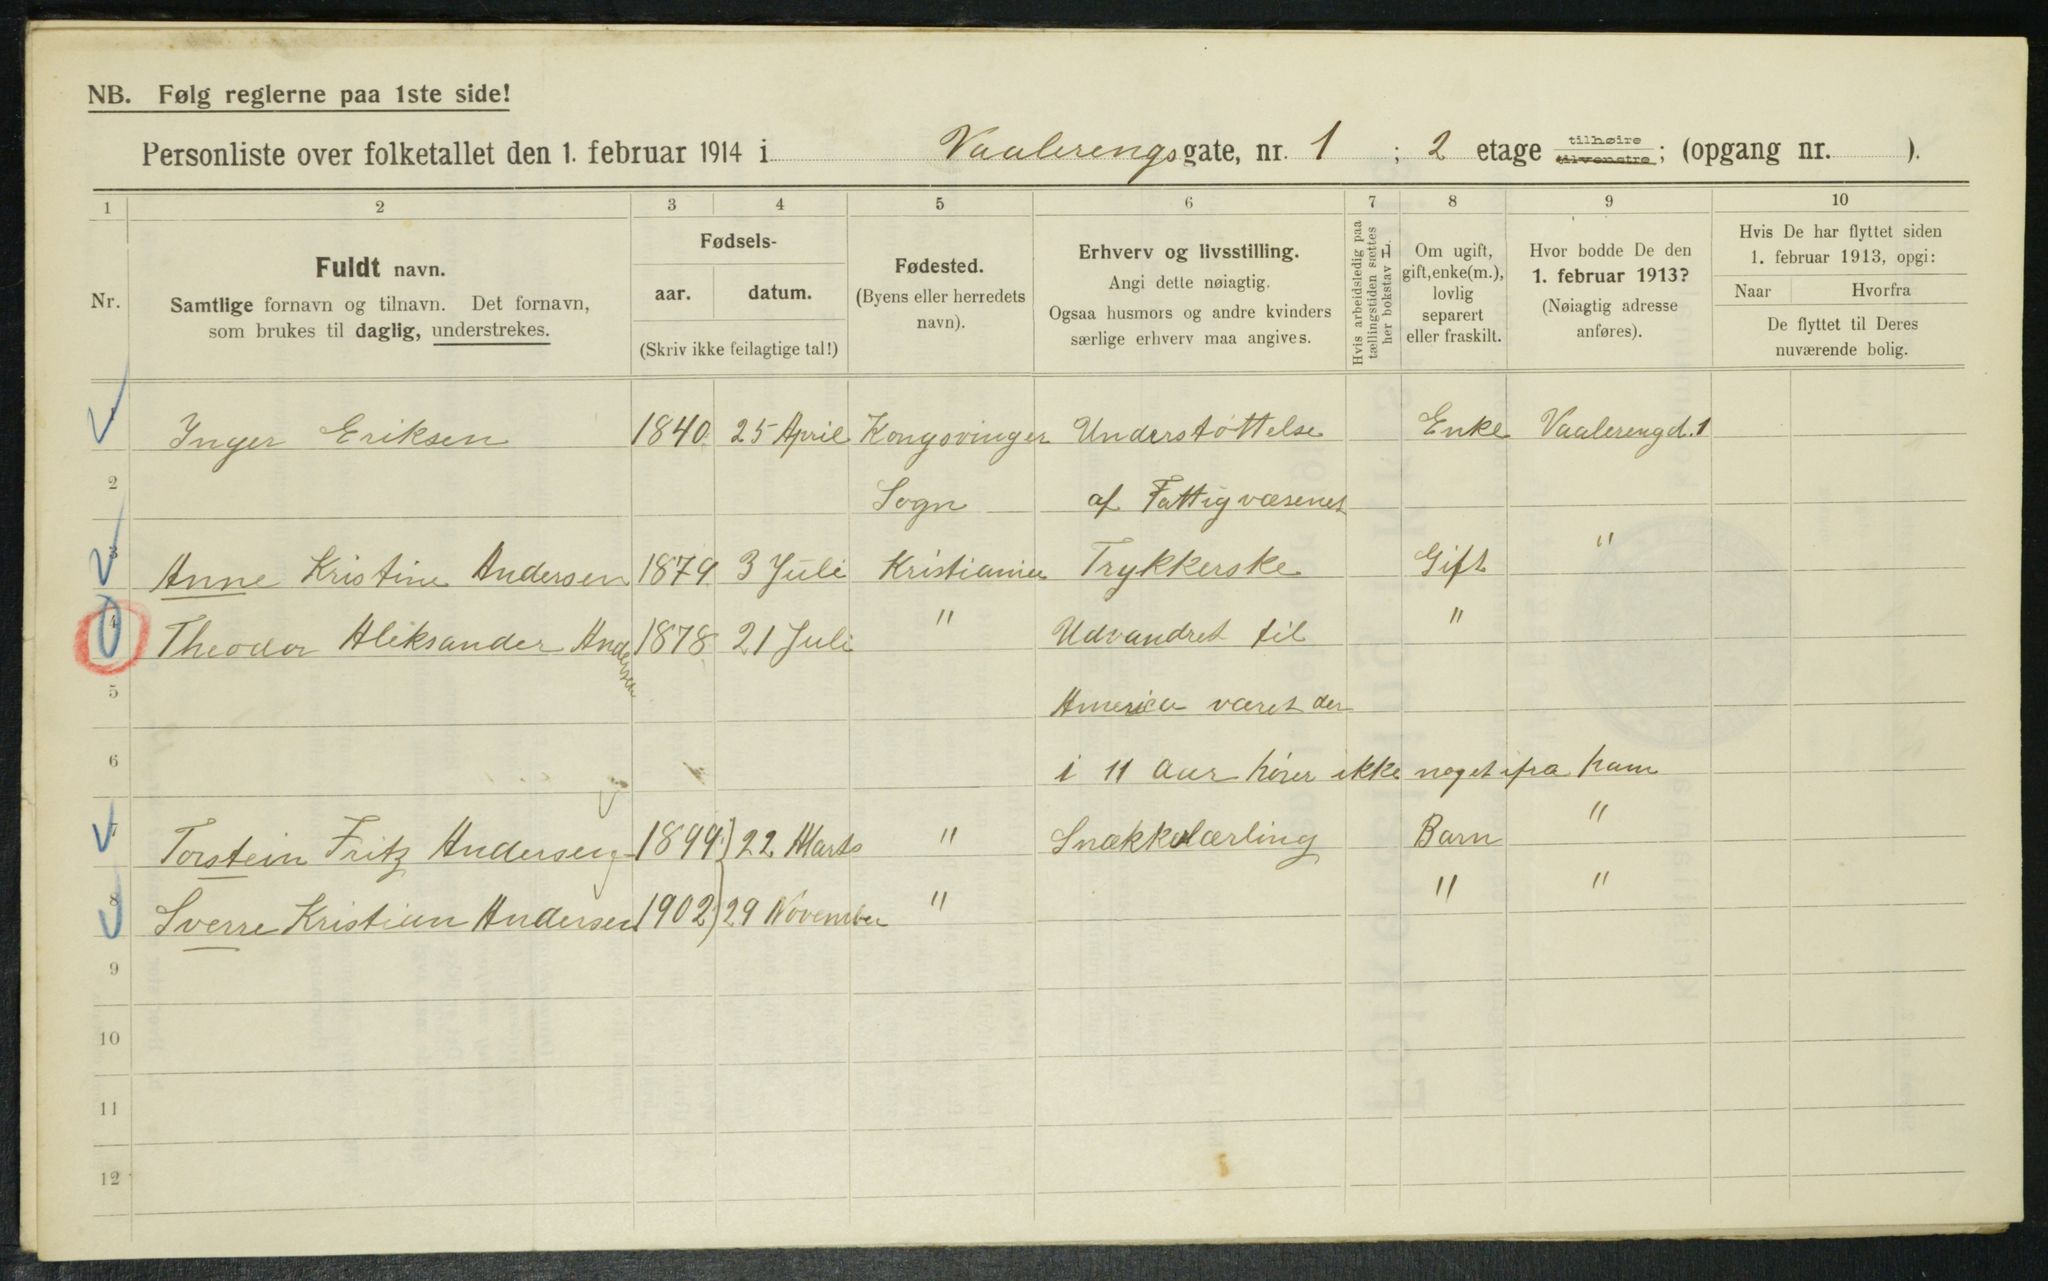 NB. Følg reglerne paa 1ste side!
Personliste over folketallet den 1. februar 1914 i Vaalerengsgate, nr. 1 ; 2 etage tilhøire tilvenstre; (opgang nr. ).
1 2 3 4 5 6 7 8 9 10
Nr.
Fuldt navn.
Samtlige fornavn og tilnavn. Det fornavn,
som brukes til daglig, understrekes.
Fødsels-
aar. datum.
(Skriv ikke feilagtige tal!)
Fødested.
(Byens eller herredets
navn).
Erhverv og livsstilling.
Angi dette nøiagtig.
Ogsaa husmors og andre kvinders
særlige erhverv maa angives.
Hvis arbeidsledig paa
tællingstiden sættes
her bokstav L
Om ugift,
gift, enke(m.),
lovlig
separert
eller fraskilt.
Hvor bodde De den
1. februar 1913?
(Nøiagtig adresse
anføres).
Hvis De har flyttet siden
1. februar 1913, opgi:
Naar Hvorfra
De flyttet til Deres
nuværende bolig.
Inger Eriksen 1840 25 April Kongsvinger Understøttelse Enke Vaalerengd. 1
2 Sogn af Fattigvæsenet
3 Anne Kristine Andersen 1879 3 Juli Kristiania Trykkerske Gift "
4 Theodor Aleksander Andersen 1878 21 Juli " Udvandret til "
5 America været der
6 i 11 aar hører ikke noget ifra ham
7 Torstein Fritz Andersen 1899 22 Marts " Snækkelærling Barn "
8 Sverre Kristian Andersen 1902 29 November " " "
9
10
11
12